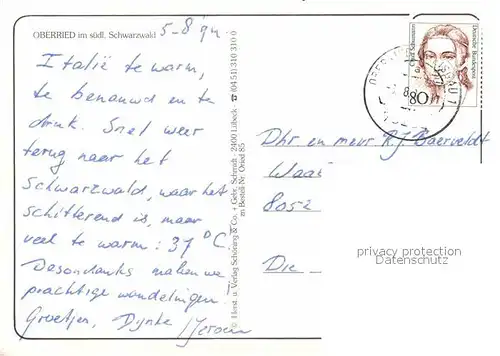 OBERRIED im südl. Schwarzwald
5-8
Italië te warm,
te benauwd en te
druk. Snel weer
terug naar het
Schwarzwald, waar het
schitterend is, maar
veel te warm: 37 °C.
Desondanks maken we
prachtige wandelingen!
Groetjes,
Jeroen
© Herst. u. Verlag Schöning & Co. + Gebr. Schmidt · 2400 Lübeck · ☎ (04 51) 310 310 0
Bestell-Nr. Oried 85
Deutsche Bundespost
80
Dhr en mevr R.J. Baerveldt
8052
Die
privacy protection
Datenschutz